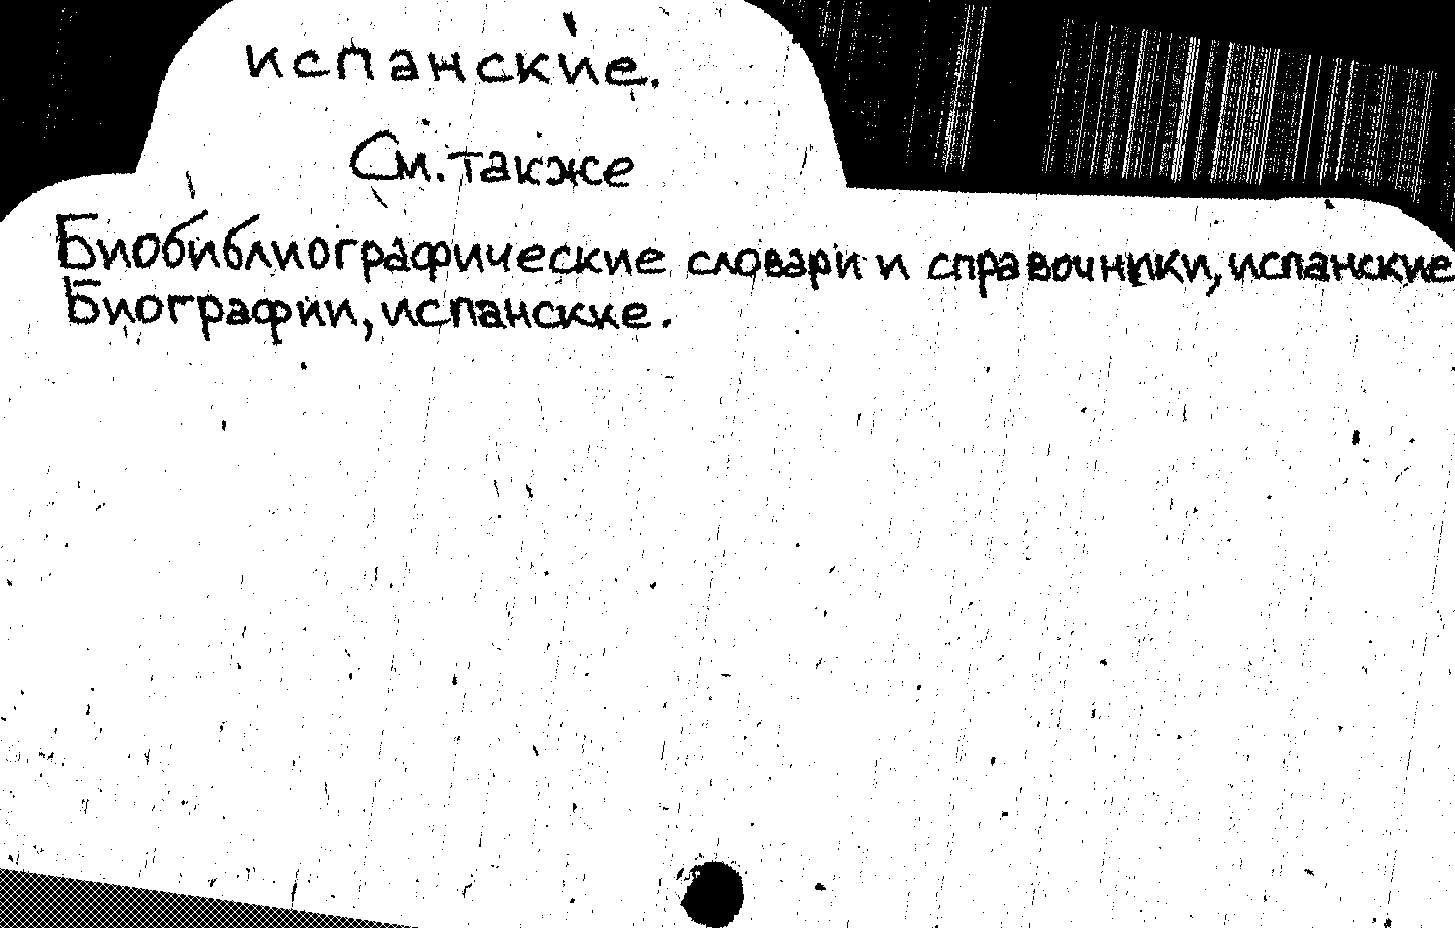 испанские.
См. также
Биобиблиографические словари и справочники, испанские
Биографии, испанские.